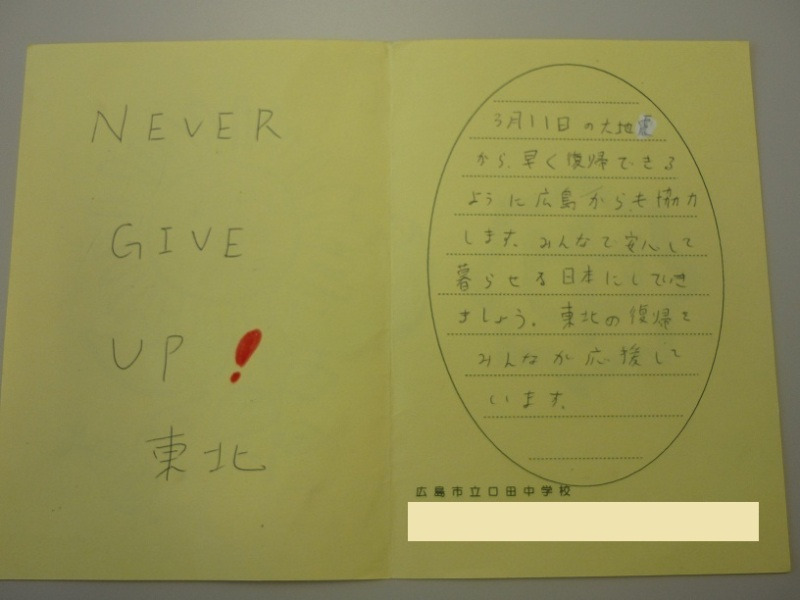 NEVER
GIVE
UP!
東北
3月11日の大地震
から、早く復帰できる
ように広島からも協力
します。みんなで安心して
暮らせる日本にしていき
ましょう。東北の復帰を
みんなが応援して
います。
広島市立口田中学校